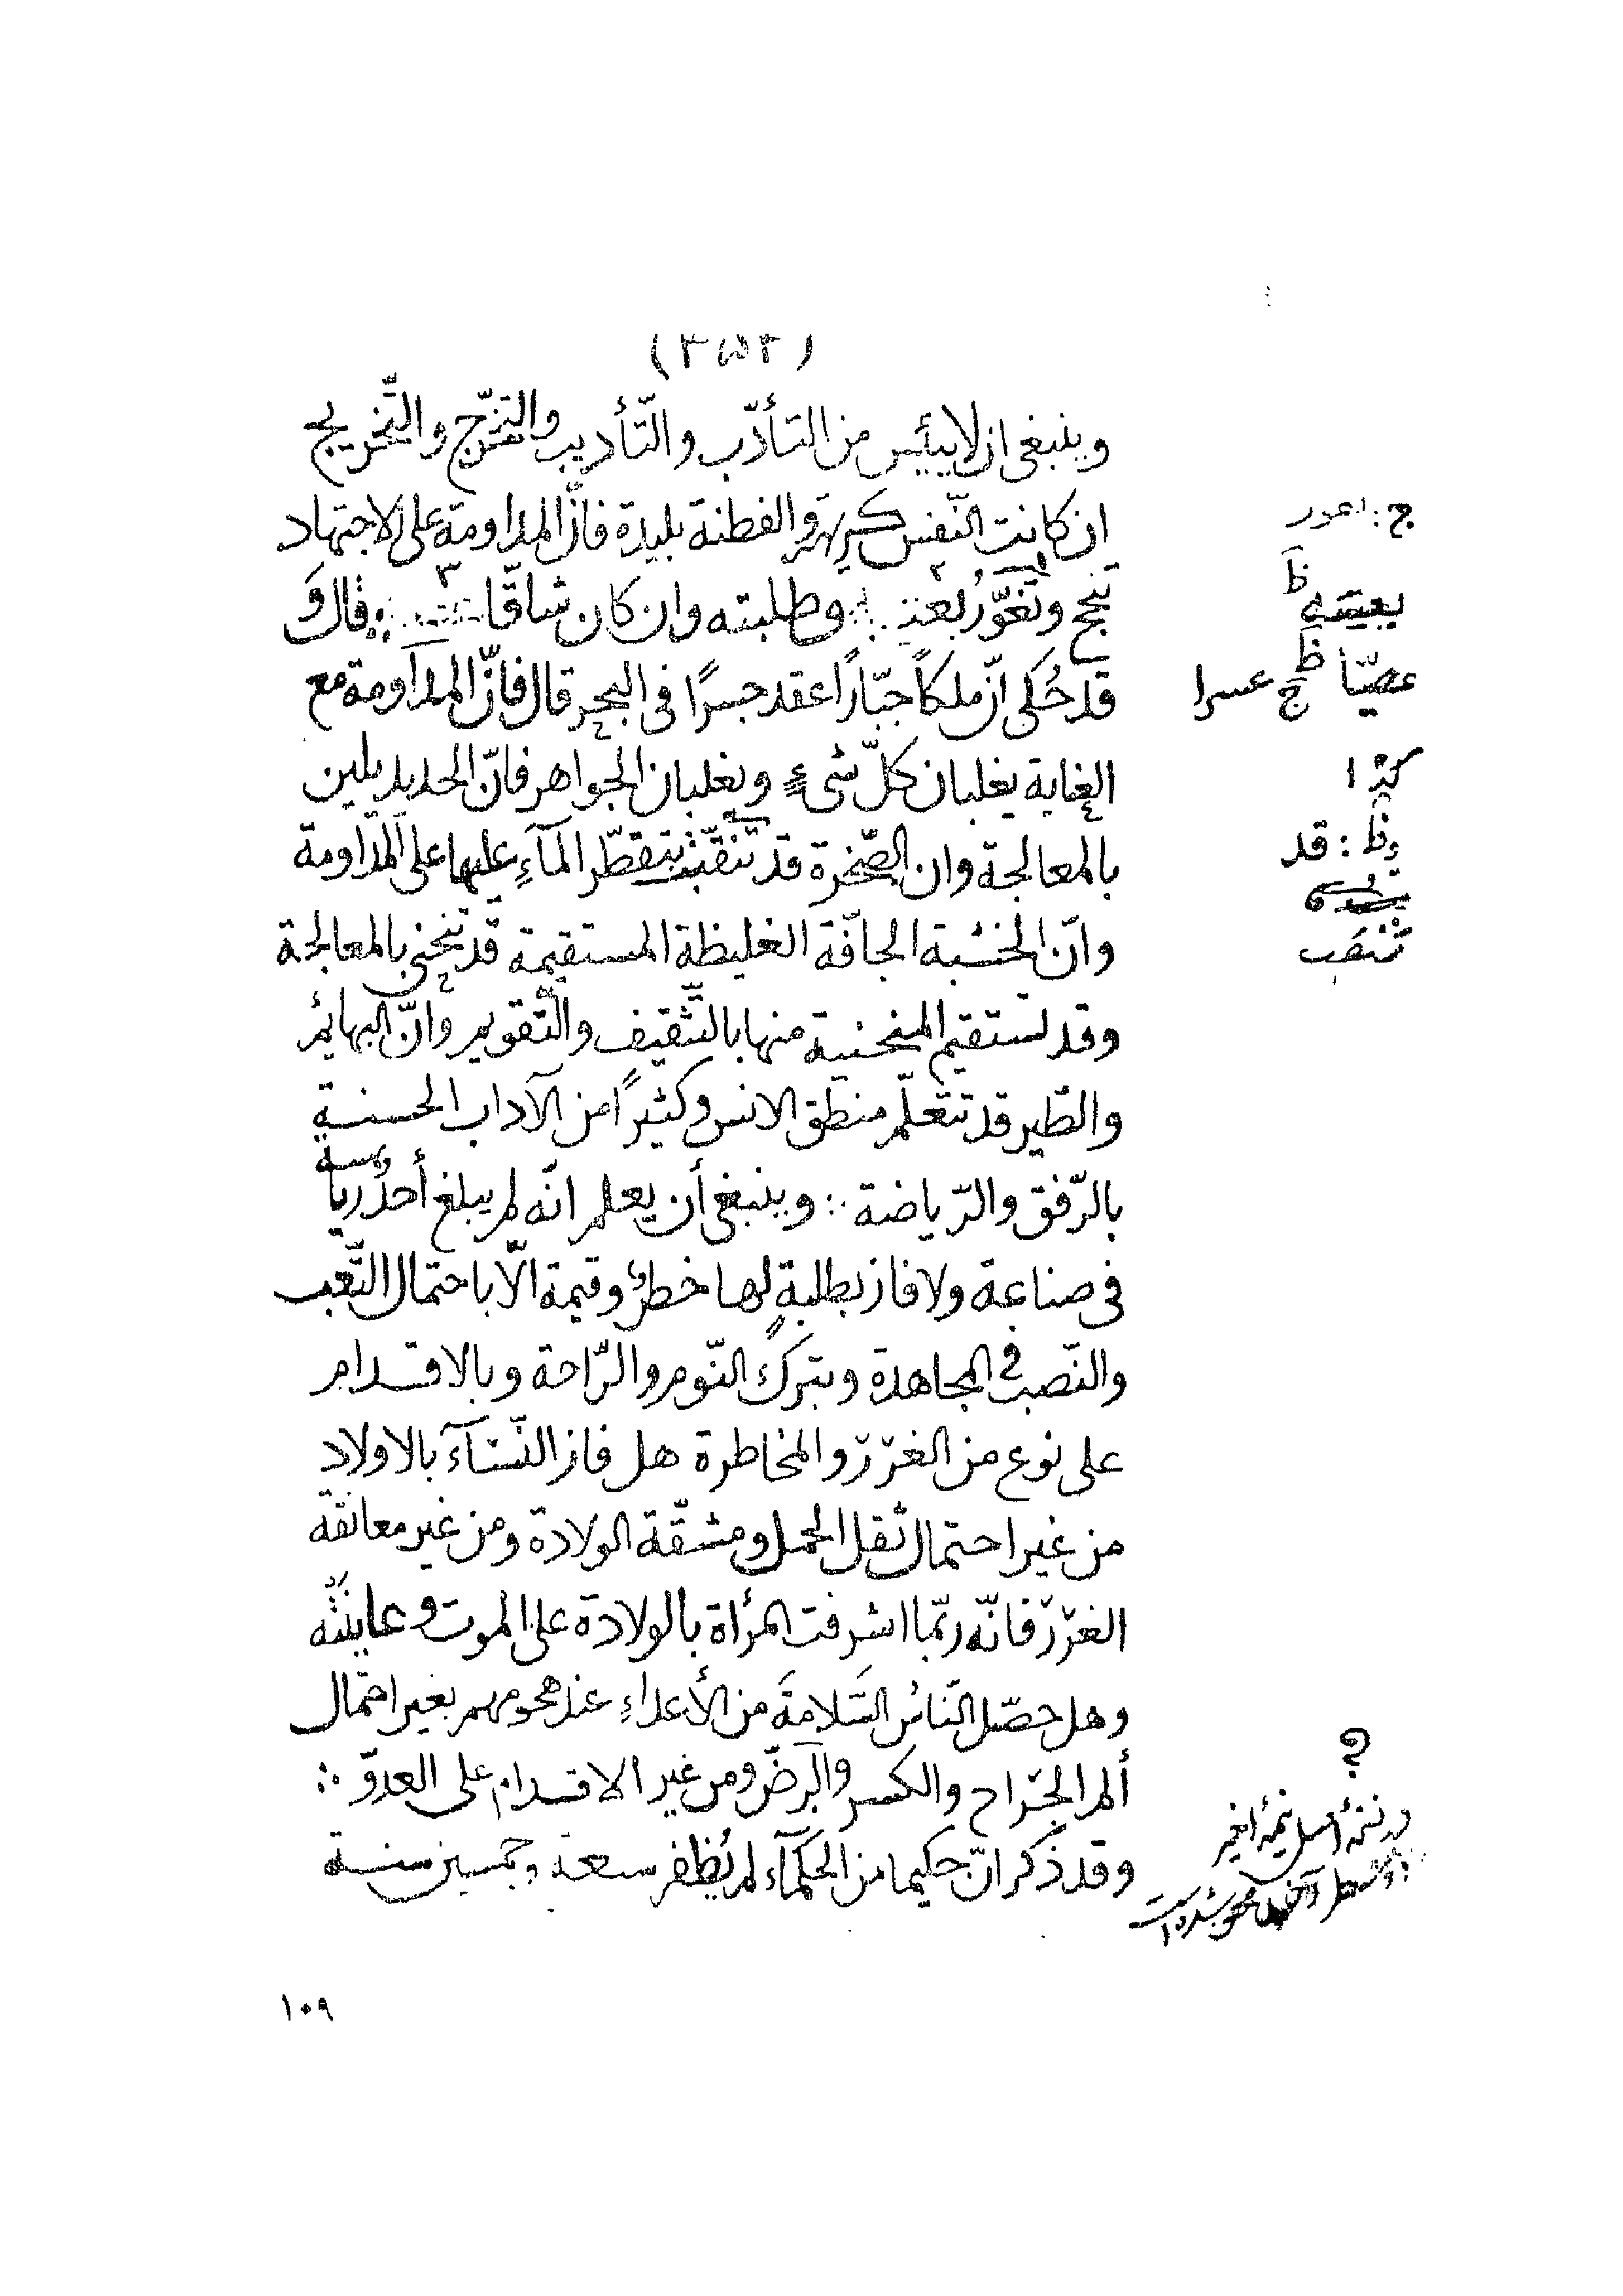 (٣٥٣)
وينبغى ان لا ييئس من التأدّب والتّأديب والتخرّج والتّخريج
ان كانت النّفس كريهة والفطنة بليدة فانّ المداومة على الاجتهاد
تنجح وتغوّر وطلبته وان كان شاقّا قال وَ
قد حُكى انّ ملكاً جبّاراً عقد جسرًا فى البحر قال فانّ المداومة مع
الغاية يغلبان كلّ شىءٍ ويغلبان الجواهر فانّ الحديد يلين
بالمعالجة وان الصّخرة قد تنقّبت بتقطّر المآءِ عليها على المداومة
وانّ الخشبة الجافّة الغليظة المستقيمة قد تنحنى بالمعالجة
وقد تستقيم المنحنية منها بالتّثقيف والتّقويم وانّ البهائم
والطّير قد تتعلّم منطق الانس وكثيرًا من الآداب الحسنة
بالرّفق والرّياضة ∴ وينبغى أن يعلم انّه لم يبلغ أحدٌ رياسة
فى صناعة ولا فاز بطلبةٍ لها خطرٌ وقيمة الّا باحتمال التّعب
والنّصب فى المجاهدة وبترك النّوم والرّاحة وبالاقدام
على نوع من الغرَر والمخاطرة هل فاز النّسآء بالاولاد
من غير احتمال ثقل الحمل ومشقّة الولادة ومن غير معانقة
الغرَر فانّه ربّما اشرفت المرأة بالولادة على الموت وعاينَتْه
وهل حصّل النّاسُ السّلامةَ من الأعداءِ عند هجومهم بغير احتمال
ألم الجرَاح والكسر والرضّ ومن غير الاقدام على العدوّ ∴
وقد ذكر انّ حكيما من الحكمآء لم يُظفر سعة وخمسين سنة
ج:
ظ
عصيّاً ظ ج عسرا
كذا
وظ: قد
؟
١٠٩